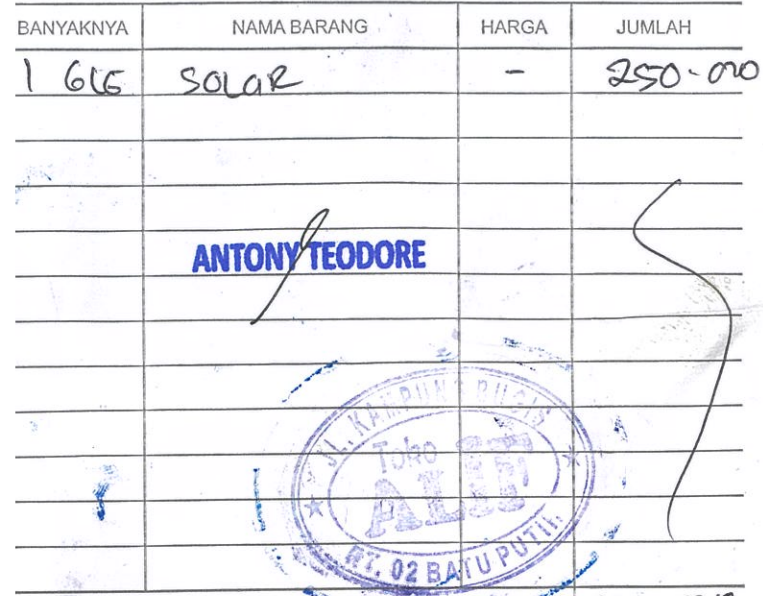 BANYAKNYA NAMA BARANG HARGA JUMLAH
1 SOLAR - 250.000
ANTONY TEODORE
JL. KAMPUNG BUGIS
Toko
ALIF
RT. 02 BATU PUTIH